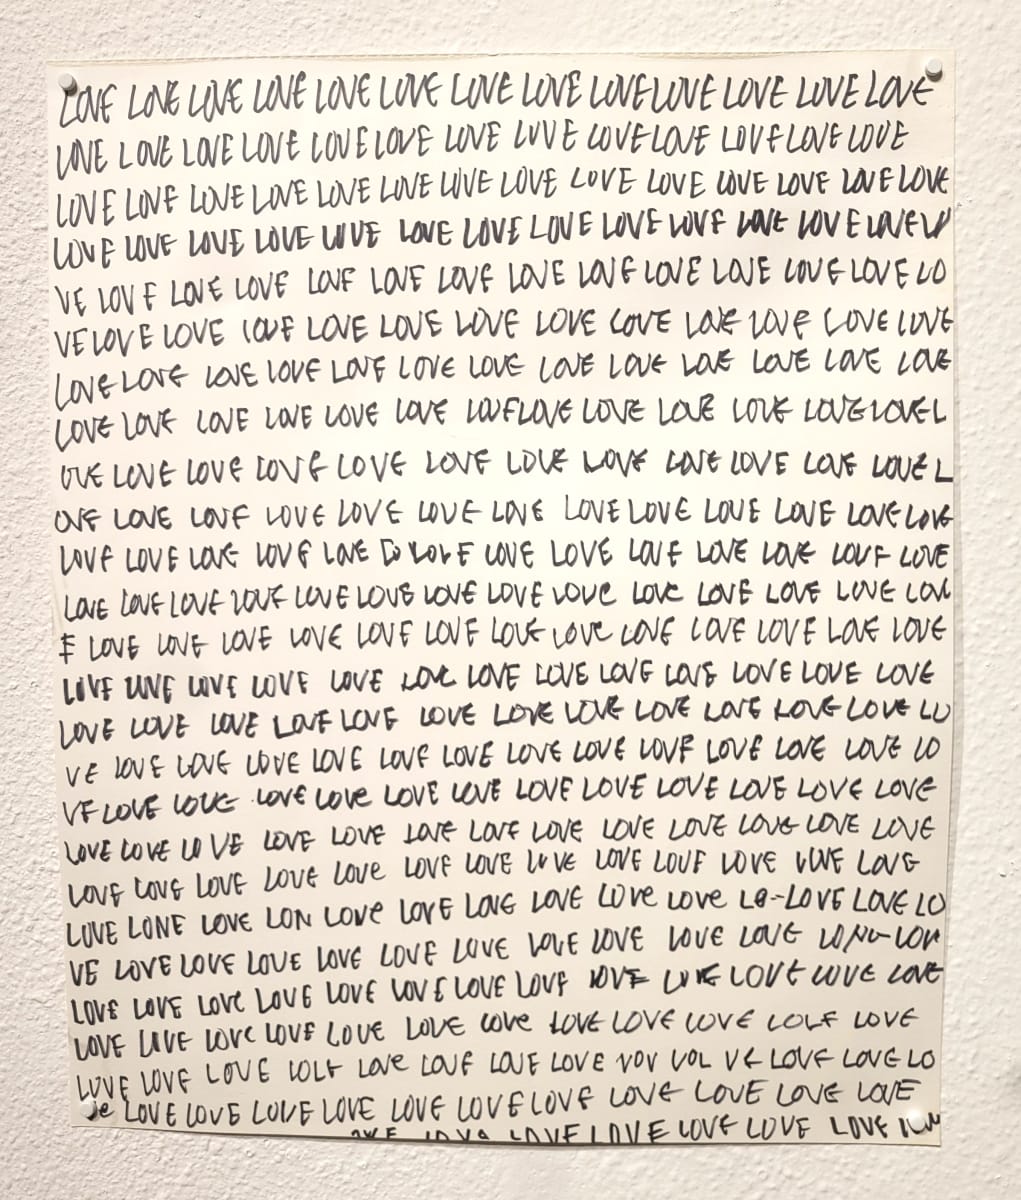 LOVE LOVE LOVE LOVE LOVE LOVE LOVE LOVE LOVE LOVE LOVE LOVE LOVE
LOVE LOVE LOVE LOVE LOVE LOVE LOVE LOVE LOVE LOVE LOVE LOVE LOVE
LOVE LOVE LOVE LOVE LOVE LOVE LOVE LOVE LOVE LOVE LOVE LOVE LOVE LOVE
LOVE LOVE LOVE LOVE LOVE LOVE LOVE LOVE LOVE LOVE LOVE LOVE LOVE LO
VE LOVE LOVE LOVE LOVE LOVE LOVE LOVE LOVE LOVE LOVE LOVE LOVE LO
VE LOVE LOVE LOVE LOVE LOVE LOVE LOVE LOVE LOVE LOVE LOVE LOVE
LOVE LOVE LOVE LOVE LOVE LOVE LOVE LOVE LOVE LOVE LOVE LOVE LOVE
LOVE LOVE LOVE LOVE LOVE LOVE LOVE LOVE LOVE LOVE LOVE LOVE LOVE L
OVE LOVE LOVE LOVE LOVE LOVE LOVE LOVE LOVE LOVE LOVE LOVE L
OVE LOVE LOVE LOVE LOVE LOVE LOVE LOVE LOVE LOVE LOVE LOVE LOVE
LOVE LOVE LOVE LOVE LOVE LOVE LOVE LOVE LOVE LOVE LOVE LOVE LOVE
LOVE LOVE LOVE LOVE LOVE LOVE LOVE LOVE LOVE LOVE LOVE LOVE LOVE LOV
E LOVE LOVE LOVE LOVE LOVE LOVE LOVE LOVE LOVE LOVE LOVE LOVE LOVE
LOVE LOVE LOVE LOVE LOVE LOVE LOVE LOVE LOVE LOVE LOVE LOVE LOVE
LOVE LOVE LOVE LOVE LOVE LOVE LOVE LOVE LOVE LOVE LOVE LOVE LO
VE LOVE LOVE LOVE LOVE LOVE LOVE LOVE LOVE LOVE LOVE LOVE LOVE LO
VE LOVE LOVE LOVE LOVE LOVE LOVE LOVE LOVE LOVE LOVE LOVE LOVE
LOVE LOVE LOVE LOVE LOVE LOVE LOVE LOVE LOVE LOVE LOVE LOVE LOVE
LOVE LOVE LOVE LOVE LOVE LOVE LOVE LOVE LOVE LOVE LOVE LOVE LOVE
LOVE LONE LOVE LON LOVE LOVE LOVE LOVE LOVE LOVE LO-LOVE LOVE LO
VE LOVE LOVE LOVE LOVE LOVE LOVE LOVE LOVE LOVE LOVE LOV
LOVE LOVE LOVE LOVE LOVE LOVE LOVE LOVE LOVE LOVE LOVE LOVE LOVE
LOVE LOVE LOVE LOVE LOVE LOVE LOVE LOVE LOVE LOVE LOVE LOVE
LOVE LOVE LOVE LOVE LOVE LOVE LOVE LOVE VOV VOL VE LOVE LOVE LO
ve LOVE LOVE LOVE LOVE LOVE LOVE LOVE LOVE LOVE LOVE LOVE
LOVE LOVE LOVE LOVE LOVE LOVE